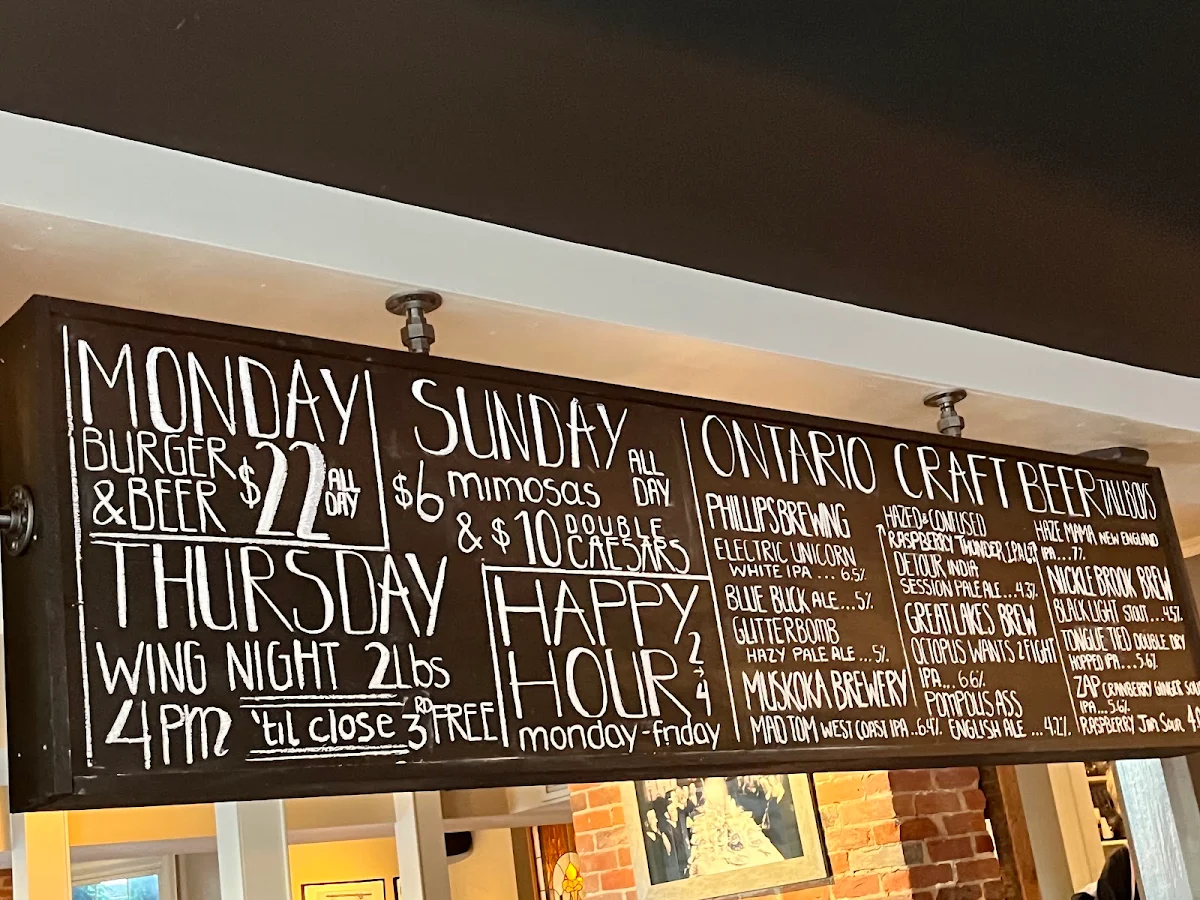 MONDAY
BURGER
&BEER $22 ALL
DAY
THURSDAY
WING NIGHT 2Lbs
4PM 'til close 3RD FREE
SUNDAY
$6 mimosas ALL
DAY
& $10 DOUBLE
CAESARS
HAPPY
HOUR 2-4
monday-friday
ONTARIO CRAFT BEER TALLBOYS
PHILLIPS BREWING
ELECTRIC UNICORN
WHITE IPA ... 6.5%
BLUE BUCK ALE...5%
GLITTERBOMB
HAZY PALE ALE ...5%
MUSKOKA BREWERY
MAD TOM WEST COAST IPA ..6.4%
HAZED & CONFUSED
RASPBERRY THUNDER IPA
DETOUR INDIA
SESSION PALE ALE...4.3%
GREAT LAKES BREW
OCTOPUS WANTS 2 FIGHT
IPA... 6.6%
POMPOUS ASS
ENGLISH ALE ...4.2%
HAZE MAMA NEW ENGLAND
IPA...7%
NICKLE BROOK BREW
BLACK LIGHT STOUT...4.5%
TONGUE TIED DOUBLE DRY
HOPPED IPA...5.6%
ZAP CRANBERRY GINGER
IPA...5.6%
RASPBERRY